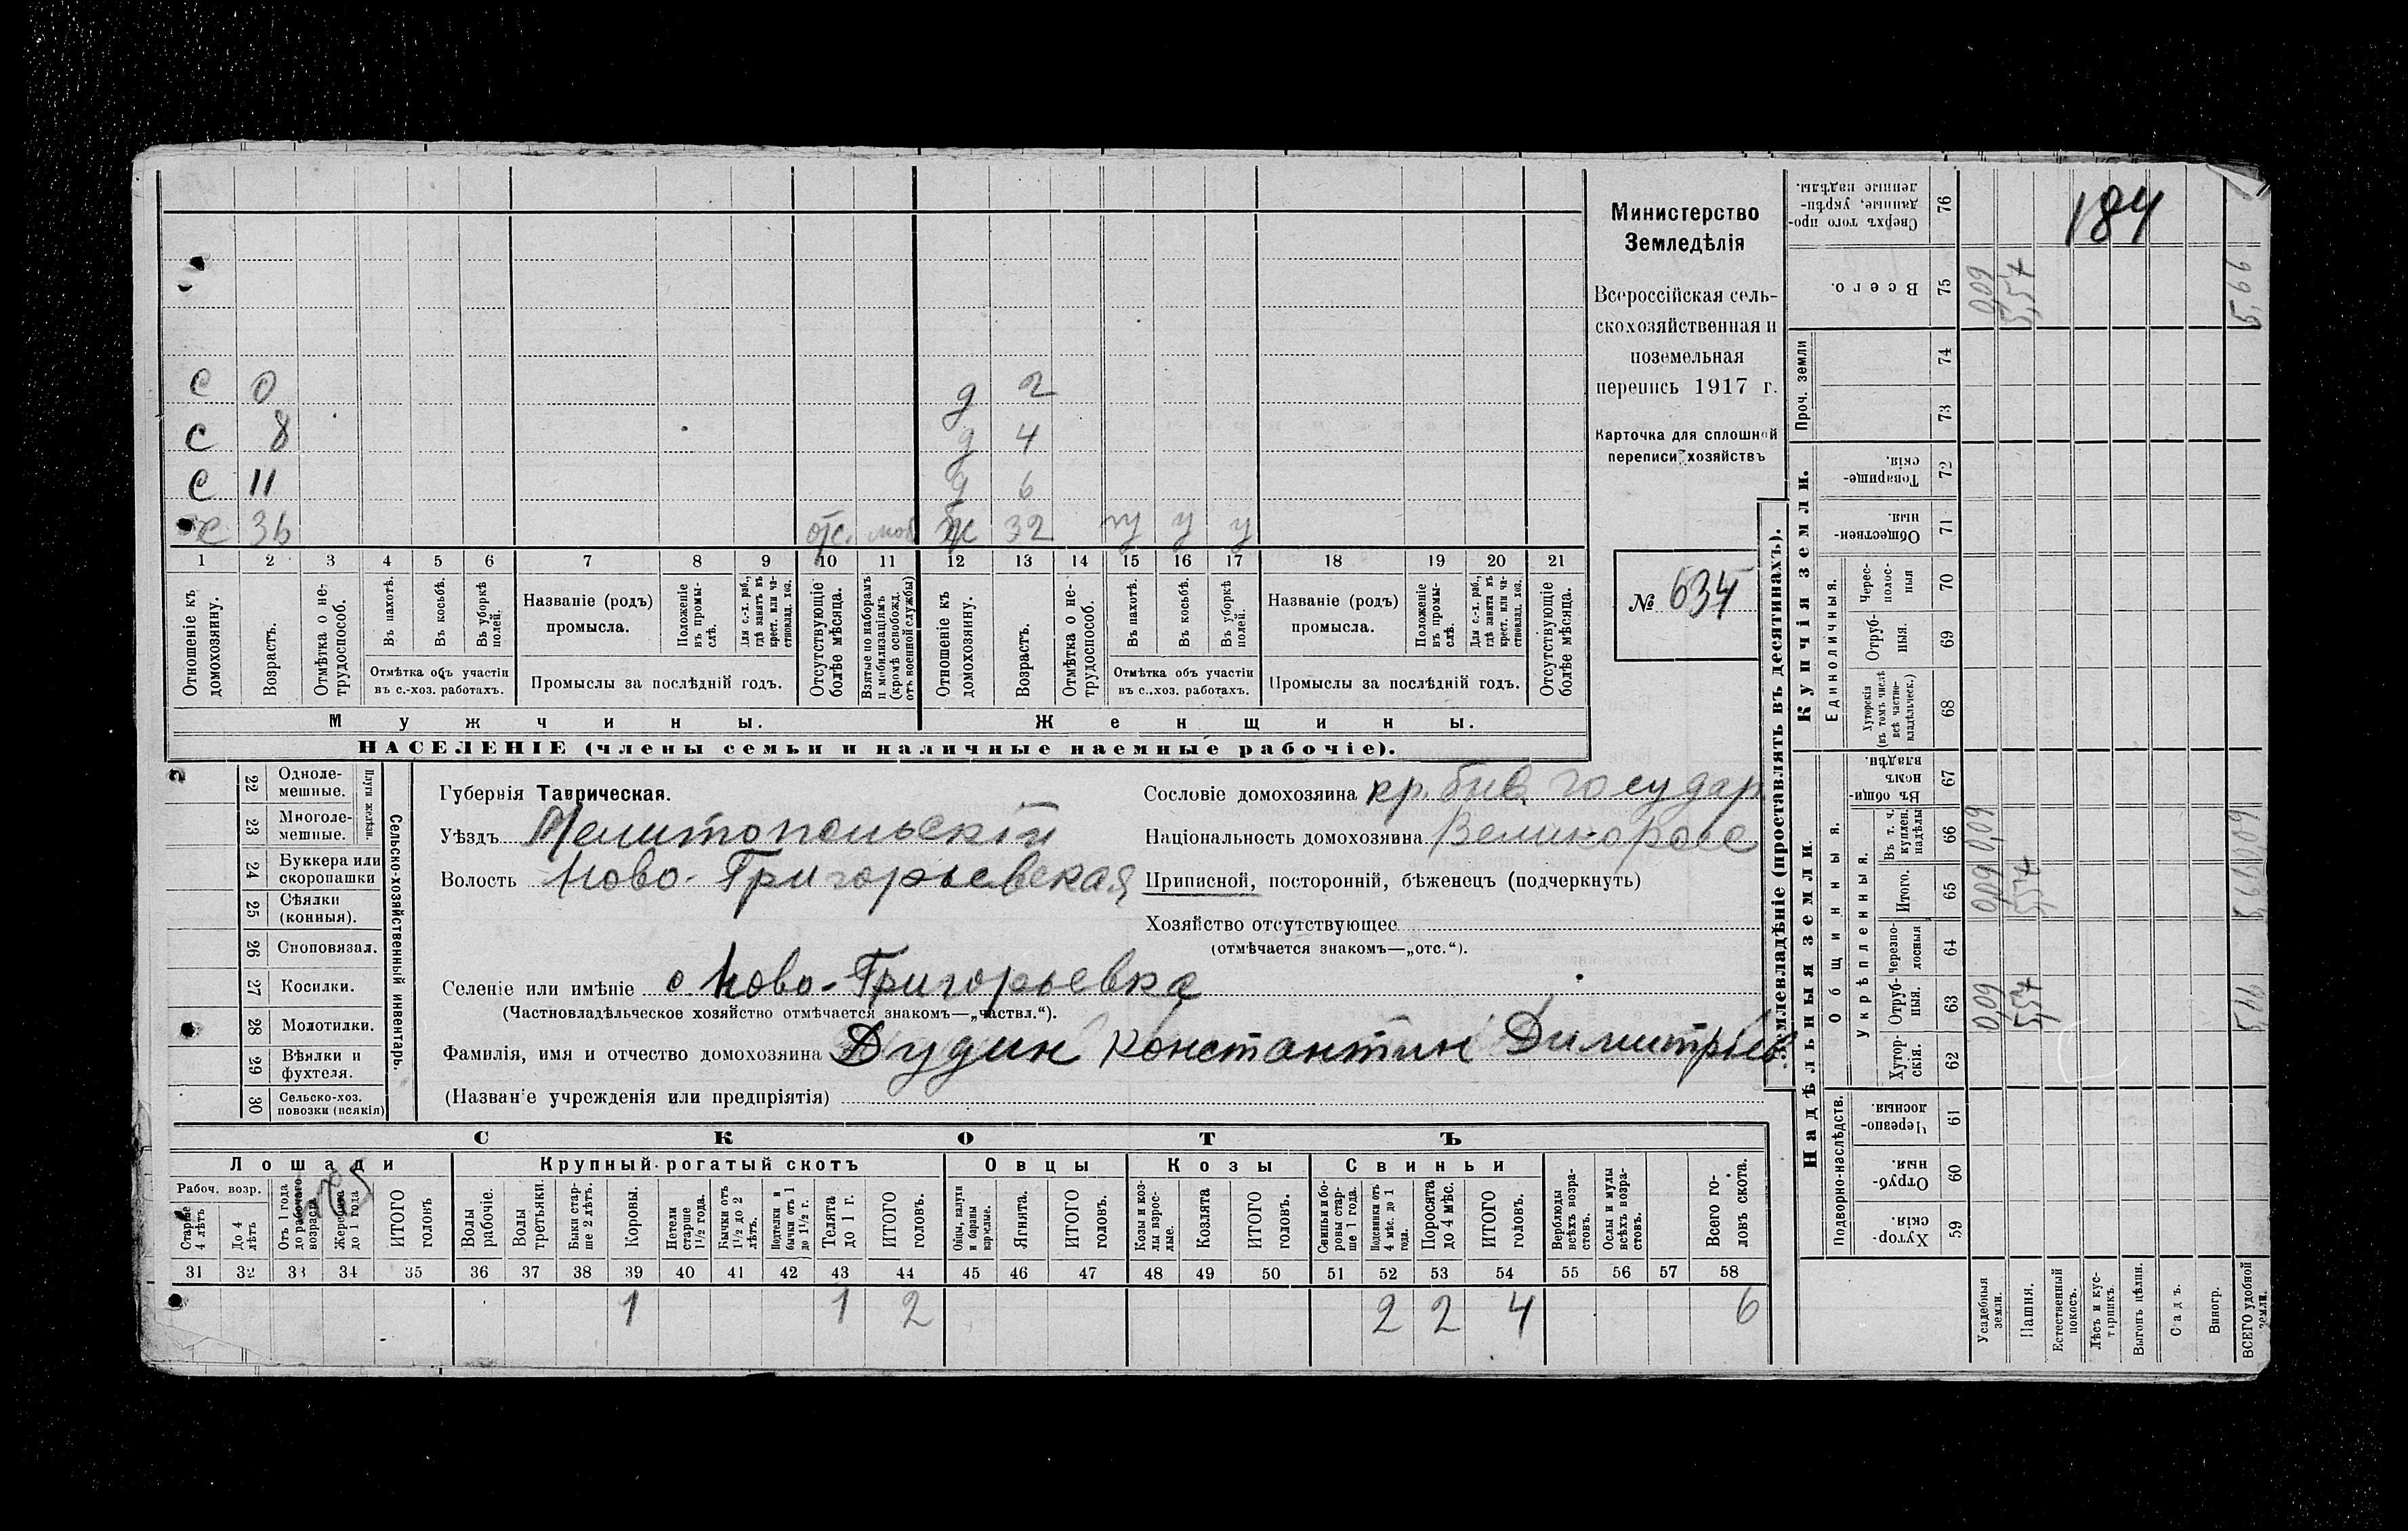 Министерство
Земледѣлія
Всероссійская сель-
скохозяйственная и
поземельная
перепись 1917 г.
Карточка для сплошной
переписи хозяйствъ
№ 634
184
с 0 д 2
с 8 д 4
с 11 д 6
36 отс. моб 32 у у
1 2 3 4 5 6 7 8 9 10 11 12 13 14 15 16 17 18 19 20 21
Отношеніе къ домохозяину.
Возрастъ.
Отмѣтка о не-трудоспособ.
Въ пахотѣ.
Въ косьбѣ.
Въ уборкѣ полей.
Отмѣтка объ участіи
въ с.-хоз. работахъ.
Названіе (родъ)
промысла.
Положеніе въ промы-слѣ.
Для с.-х. раб., гдѣ занятъ въ крест. или ча-стновлад. хоз.
Промыслы за послѣдній годъ.
Отсутствующіе болѣе мѣсяца.
Взятые по наборамъ и мобилизаціямъ (кромѣ освобожд. отъ военной службы)
Отношеніе къ домохозяину.
Возрастъ.
Отмѣтка о не-трудоспособ.
Въ пахотѣ.
Въ косьбѣ.
Въ уборкѣ полей.
Отмѣтка объ участіи
въ с.-хоз. работахъ.
Названіе (родъ)
промысла.
Положеніе въ промы-слѣ.
Для с.-х. раб., гдѣ занята въ крест. или ча-стновлад. хоз.
Промыслы за послѣдній годъ.
Отсутствующіе болѣе мѣсяца.
Мужчины. Женщины.
НАСЕЛЕНІЕ (члены семьи и наличные наемные рабочіе).
Сельско-хозяйственный инвентарь.
Плуги желѣзн.
22 Одноле-мешные.
23 Многоле-мешные.
24 Буккера или скоропашки
25 Сѣялки (конныя).
26 Сноповязал.
27 Косилки.
28 Молотилки.
29 Вѣялки и фухтеля.
30 Сельско-хоз. повозки (всякія)
Губернія Таврическая.
Уѣздъ Мелитопольскій
Волость Ново-Григорьевская
Сословіе домохозяина кр. быв. государ
Національность домохозяина Великоросс
Приписной, посторонній, бѣженецъ (подчеркнуть)
Хозяйство отсутствующее
(отмѣчается знакомъ—„отс.“).
Селеніе или имѣніе с Ново-Григорьевка
(Частновладѣльческое хозяйство отмѣчается знакомъ—„частвл.“).
Фамилія, имя и отчество домохозяина Дудин Константин Димитріев
(Названіе учрежденія или предпріятія)
СКОТЪ
Лошади Крупный рогатый скотъ Овцы Козы Свиньи
Рабоч. возр.
Старше 4 лѣтъ
До 4 лѣтъ
Отъ 1 года до рабочаго возраста
Жеребята до 1 года
ИТОГО головъ
Волы рабочіе.
Волы третьяки.
Быки стар-ше 2 лѣтъ.
Коровы.
Нетели старше 1½ года.
Бычки отъ 1½ до 2 лѣтъ.
Подтелки и бычки отъ 1 до 1½ г.
Телята до 1 г.
ИТОГО головъ.
Овцы, валухи и бараны взрослые.
Ягнята.
ИТОГО головъ.
Козы и коз-лы взрос-лые.
Козлята
ИТОГО головъ.
Свиньи и бо-ровы стар-ше 1 года.
Подсвинки отъ 4 мѣс. до 1 года.
Поросята до 4 мѣс.
ИТОГО головъ.
Верблюды всѣхъ возра-стовъ.
Ослы и мулы всѣхъ возра-стовъ.
Всего го-ловъ скота.
31 32 33 34 35 36 37 38 39 40 41 42 43 44 45 46 47 48 49 50 51 52 53 54 55 56 57 58
1 1 2 2 2 4 6
Землевладѣніе (проставлять въ десятинахъ).
Купчія земли.
Надѣльныя земли.
Сверхъ того про-данные, укрѣп-ленные надѣлы. 76
Всего. 75 0,09 5,57 5,66
Проч. земли 74 73
Товарище-скія. 72
Обществен-ныя. 71
Единоличныя.
Черес-полос-ныя 70
Отруб-ныя. 69
Хуторскія (въ томъ числѣ всѣ частно-владѣльческ.) 68
Общинныя.
Въ общи-номъ владѣн. 67
Укрѣпленныя.
Въ т. ч. куплен. надѣлы 66 0,09 0,09
Итого. 65 0,09 5,57 5,66
Черезпо-лосныя 64
Отруб-ныя. 63 0,09 5,57
Хутор-скія. 62
Подворно-наслѣдств.
Черезпо-лосныя. 61
Отруб-ныя. 60
Хутор-скія. 59
Усадебныя земли.
Пашня.
Естественный покосъ.
Лѣсъ и кус-тарникъ.
Выгонъ цѣлин.
Садъ.
Виногр.
ВСЕГО удобной земли.